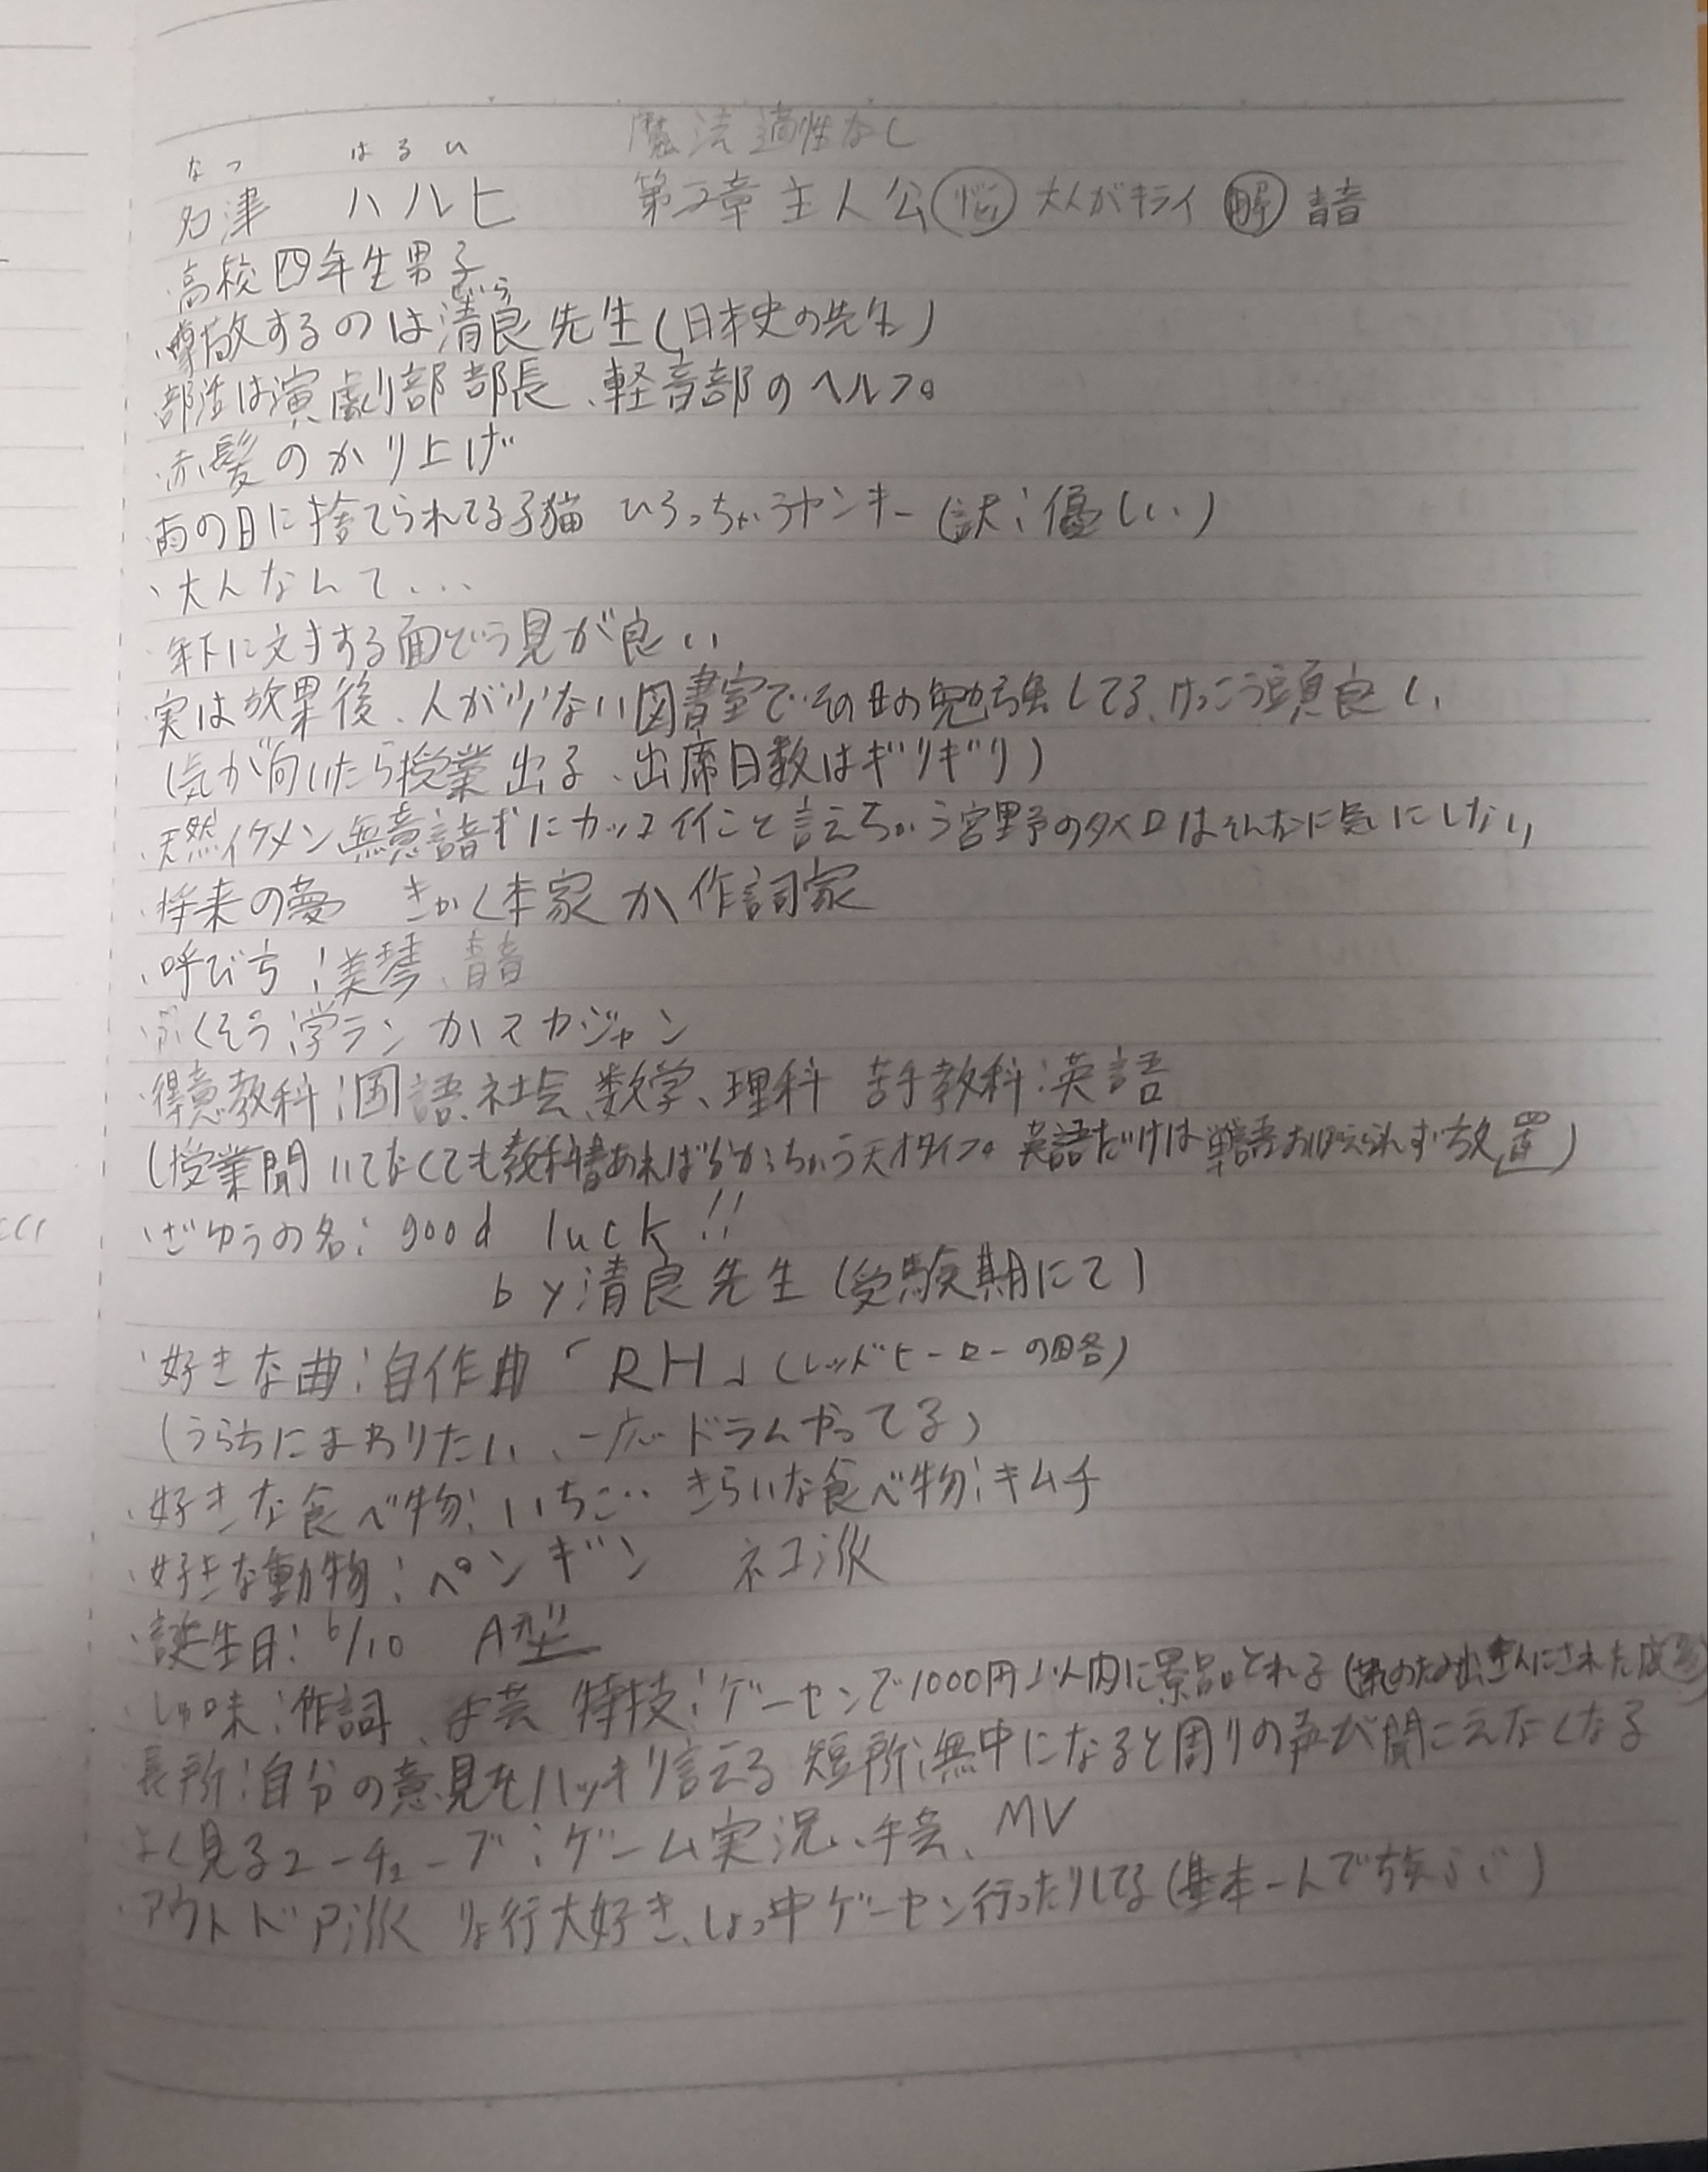 魔法適性なし
なつ はるひ
名津 ハルヒ 第2章 主人公 悩 大人がキライ 解 青音
・高校四年生男子
せいら
・尊敬するのは清良先生(日本史の先生)
・部活は演劇部部長、軽音部のヘルプ。
・赤髪のかり上げ
・雨の日に捨てられてる子猫 ひろっちゃうヤンキー(訳:優しい)
・大人なんて...
・年下に対する面どう見が良い
・実は放課後、人が少ない図書室でその日の勉強してる、けっこう頭良い
(気が向いたら授業出る、出席日数はギリギリ)
・天然イケメン 無意識にカッコイイこと言えちゃう宮野のタメ口はそんなに気にしない
・将来の夢 きゃく本家か作詞家
・呼び方:美琴、青音
・ふくそう:学ランかスカジャン
・得意教科:国語、社会、数学、理科 苦手教科:英語
(授業聞いてなくても教科書あれば分かっちゃう天才タイプ。英語だけは単語おぼえられず放置)
・ざゆうの名:good luck!!
by清良先生(受験期にて)
・好きな曲:自作曲「RH」(レッドヒーローの略)
(うらちにまわりたい、一応ドラムやってる)
・好きな食べ物:いちご… きらいな食べ物:キムチ
・好きな動物:ペンギン ネコ派
・誕生日:6/10 A型
・しゅ味:作詞、手芸 特技:ゲーセンで1000円以内に景品とれる
・長所:自分の意見をハッキリ言える 短所:無中になると周りの声が聞こえなくなる
・よく見るユーチューブ:ゲーム実況、手芸、MV
・アウトドア派 りょ行大好き、しょっ中ゲーセン行ったりしてる(基本一人で